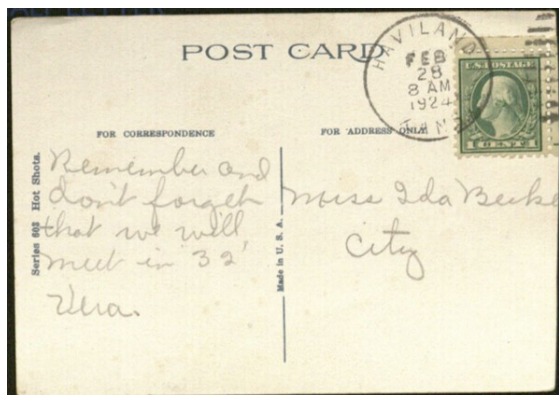 POST CARD
HAVILAND
FEB
28
8 AM
1924
KANS.
U.S. POSTAGE
1 CENT 1
FOR CORRESPONDENCE
FOR ADDRESS ONLY
Series 603 Hot Shots.
Remember and
don't forget
that we will
meet in '32'
Vera.
Made in U. S. A.
Miss Ida
City